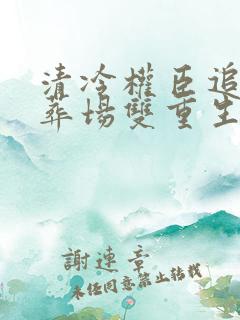 清冷權臣追
葬場雙重生
謝連章
未经同意禁止转载